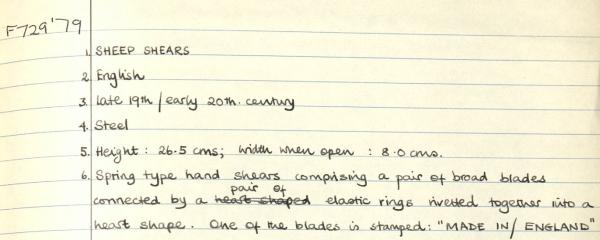 F729'79
1. SHEEP SHEARS
2. English
3. late 19th / early 20th. century
4. Steel
5. Height : 26.5 cms; width when open : 8.0 cms.
6. Spring type hand shears comprising a pair of broad blades
pair of
connected by a heart shaped elastic rings rivetted together into a
heart shape. One of the blades is stamped: "MADE IN/ ENGLAND"